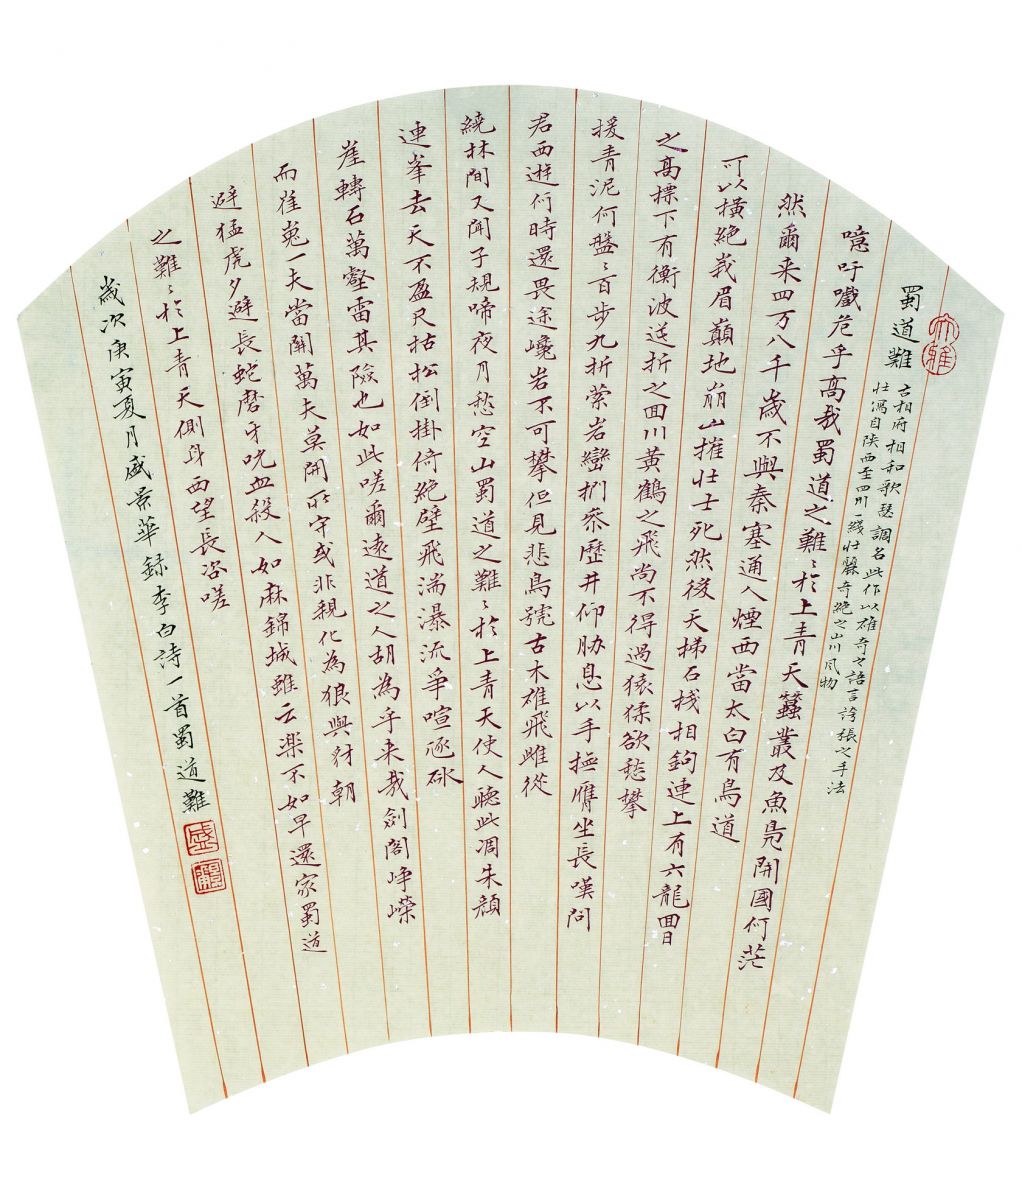 大雅
蜀道難
古相府相和歌瑟調名此作以雄奇之語言誇張之手法
壯寫自陝西至四川一綫壯麗奇絶之山川風物
噫吁嚱危乎高哉蜀道之難〻於上青天蠶叢及魚鳧開國何茫
然爾来四万八千歲不與秦塞通人煙西當太白有鳥道
可以橫絶峩眉巔地崩山摧壯士死然後天梯石棧相鉤連上有六龍回日
之高標下有衡波逆折之回川黃鶴之飛尚不得過猿猱欲愁攀
援青泥何盤〻百步九折縈岩巒捫參歷井仰脅息以手撫膺坐長嘆問
君西遊何時還畏途巉岩不可攀但見悲鳥號古木雄飛雌從
繞林間又聞子規啼夜月愁空山蜀道之難〻於上青天使人聽此凋朱顏
連峯去天不盈尺枯松倒掛倚絶壁飛湍瀑流爭喧豗砯
崖轉石萬壑雷其險也如此嗟爾遠道之人胡為乎来哉劍閣崢嶸
而崔嵬一夫當關萬夫莫開所守或非親化為狼與豺朝
避猛虎夕避長蛇磨牙吮血殺人如麻錦城雖云樂不如早還家蜀道
之難〻於上青天側身西望長咨嗟
歲次庚寅夏月盛景華録李白詩一首蜀道難
盛